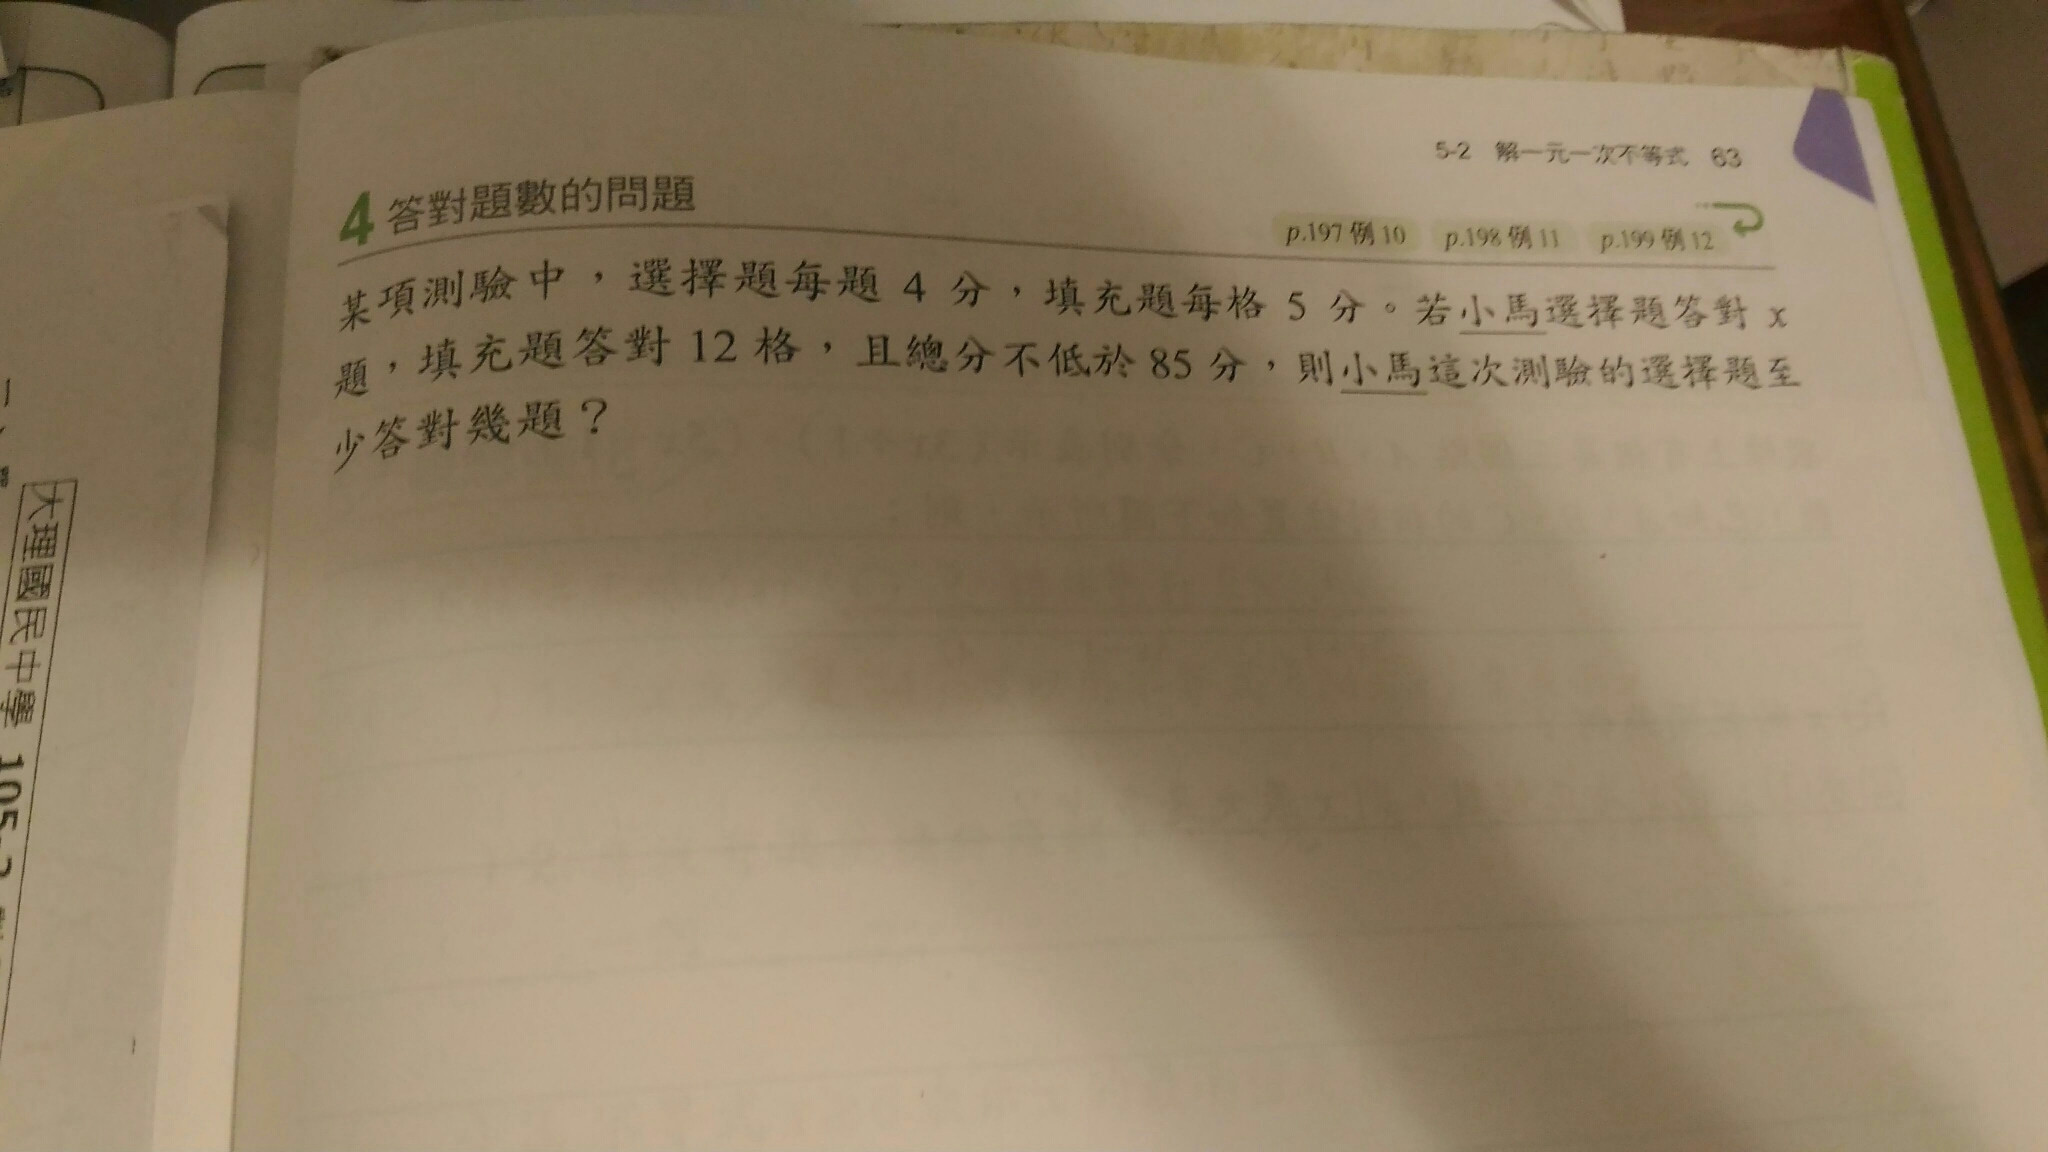 5-2 解一元一次不等式 63
4 答對題數的問題
p.197 例 10 p.198 例 11 p.199 例 12
某項測驗中，選擇題每題 4 分，填充題每格 5 分。若小馬選擇題答對 x
題，填充題答對 12 格，且總分不低於 85 分，則小馬這次測驗的選擇題至
少答對幾題？
大理國民中學 105-2